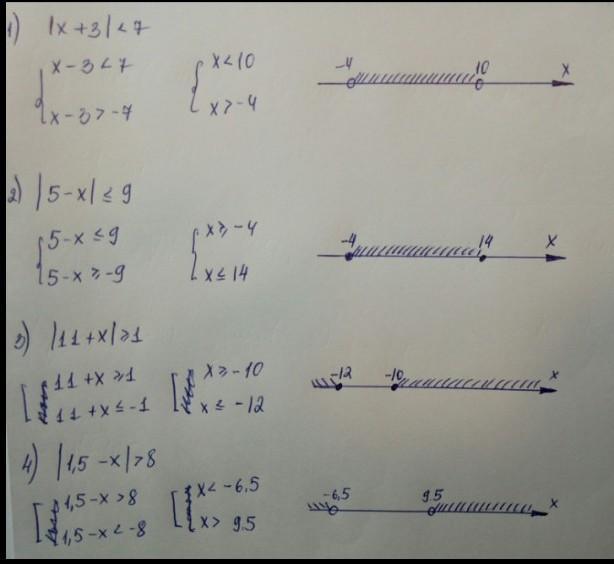 1) |x + 3| < 7
x - 3 < 7
x - 3 > -7
x < 10
x > -4
-4 10 x
2) |5 - x| ≤ 9
5 - x ≤ 9
5 - x ≥ -9
x ≥ -4
x ≤ 14
-4 14 x
3) |11 + x| ≥ 1
11 + x ≥ 1
11 + x ≤ -1
x ≥ -10
x ≤ -12
-12 -10 x
4) |1,5 - x| > 8
1,5 - x > 8
1,5 - x < -8
x < -6,5
x > 9.5
-6,5 9.5 x